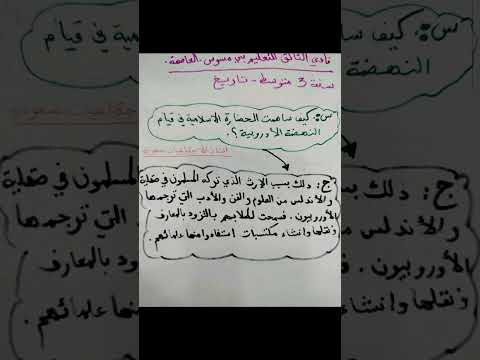 نادي التالق للتعليم بني مسوس. العاصمة.
سنة 3 متوسط - تاريخ
س: كيف ساهمت الحضارة الاسلامية في قيام
النهضة الأوروبية؟.
ج: ذلك بسبب الارث الذي تركه المسلمون في صقلية
والأندلس من العلوم والفن والأدب التي ترجمها
الأوروبيون. فسمحت لطلابهم بالتزود بالمعارف
ونقلها وانشاء مكتبات استفادوا منها علمائهم.